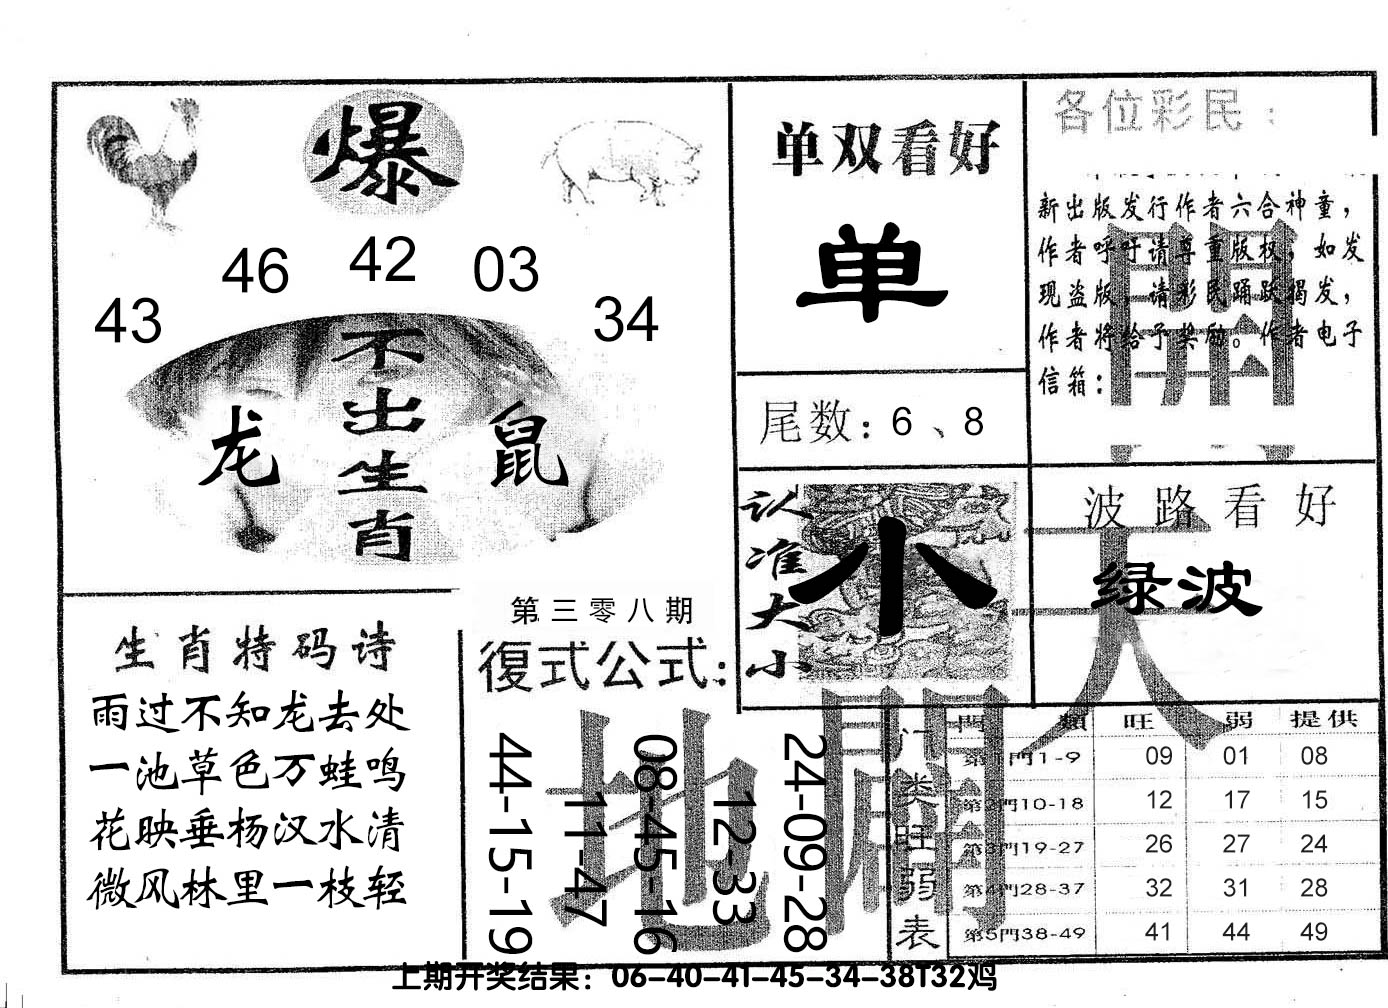 爆
43 46 42 03 34
不出生肖
龙 鼠
单双看好
单
尾数：6、8
认准大小
小
各位彩民：
新出版发行作者六合神童，
作者呼吁请尊重版权，如发
现盗版，请彩民踊跃揭发，
作者将给予奖励。作者电子
信箱：
波路看好
绿波
天
開
地
闢
生肖特码诗
雨过不知龙去处
一池草色万蛙鸣
花映垂杨汉水清
微风林里一枝轻
第三零八期
復式公式：
44-15-19
11-47
08-45-16
12-33
24-09-28
门类旺弱表
門類 旺 弱 提供
第1門1-9 09 01 08
第2門10-18 12 17 15
第3門19-27 26 27 24
第4門28-37 32 31 28
第5門38-49 41 44 49
上期开奖结果：06-40-41-45-34-38T32鸡